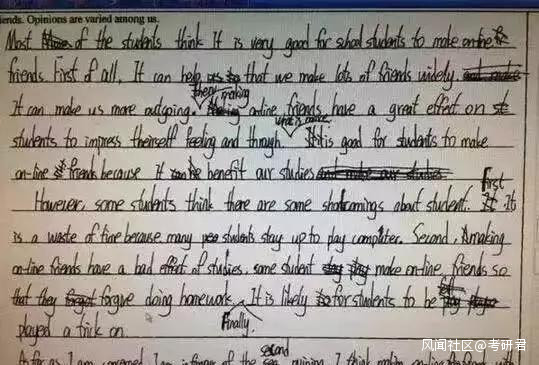 iends. Opinions are varied among us.
Most of the students think It is very good for school students to make on-line
friends. First of all, It can help that we make lots of friends widely.
It can make us more outgoing. then, making on-line friends have a great effect on
students to impress theirself feeling and through. what is more It is good for students to make
on-line friends because It benefit our studies
However, some students think there are some shortcomings about student. First It
is a waste of time because many students stay up to play computer. Second, making
on-line friends have a bad effect of studies, some student make on-line friends so
that they forgive doing homework. Finally. It is likely for students to be
played a trick on.
As far as I am concerned, I am in favor of the second opinion. I think making on-line friends with
风闻社区@考研君